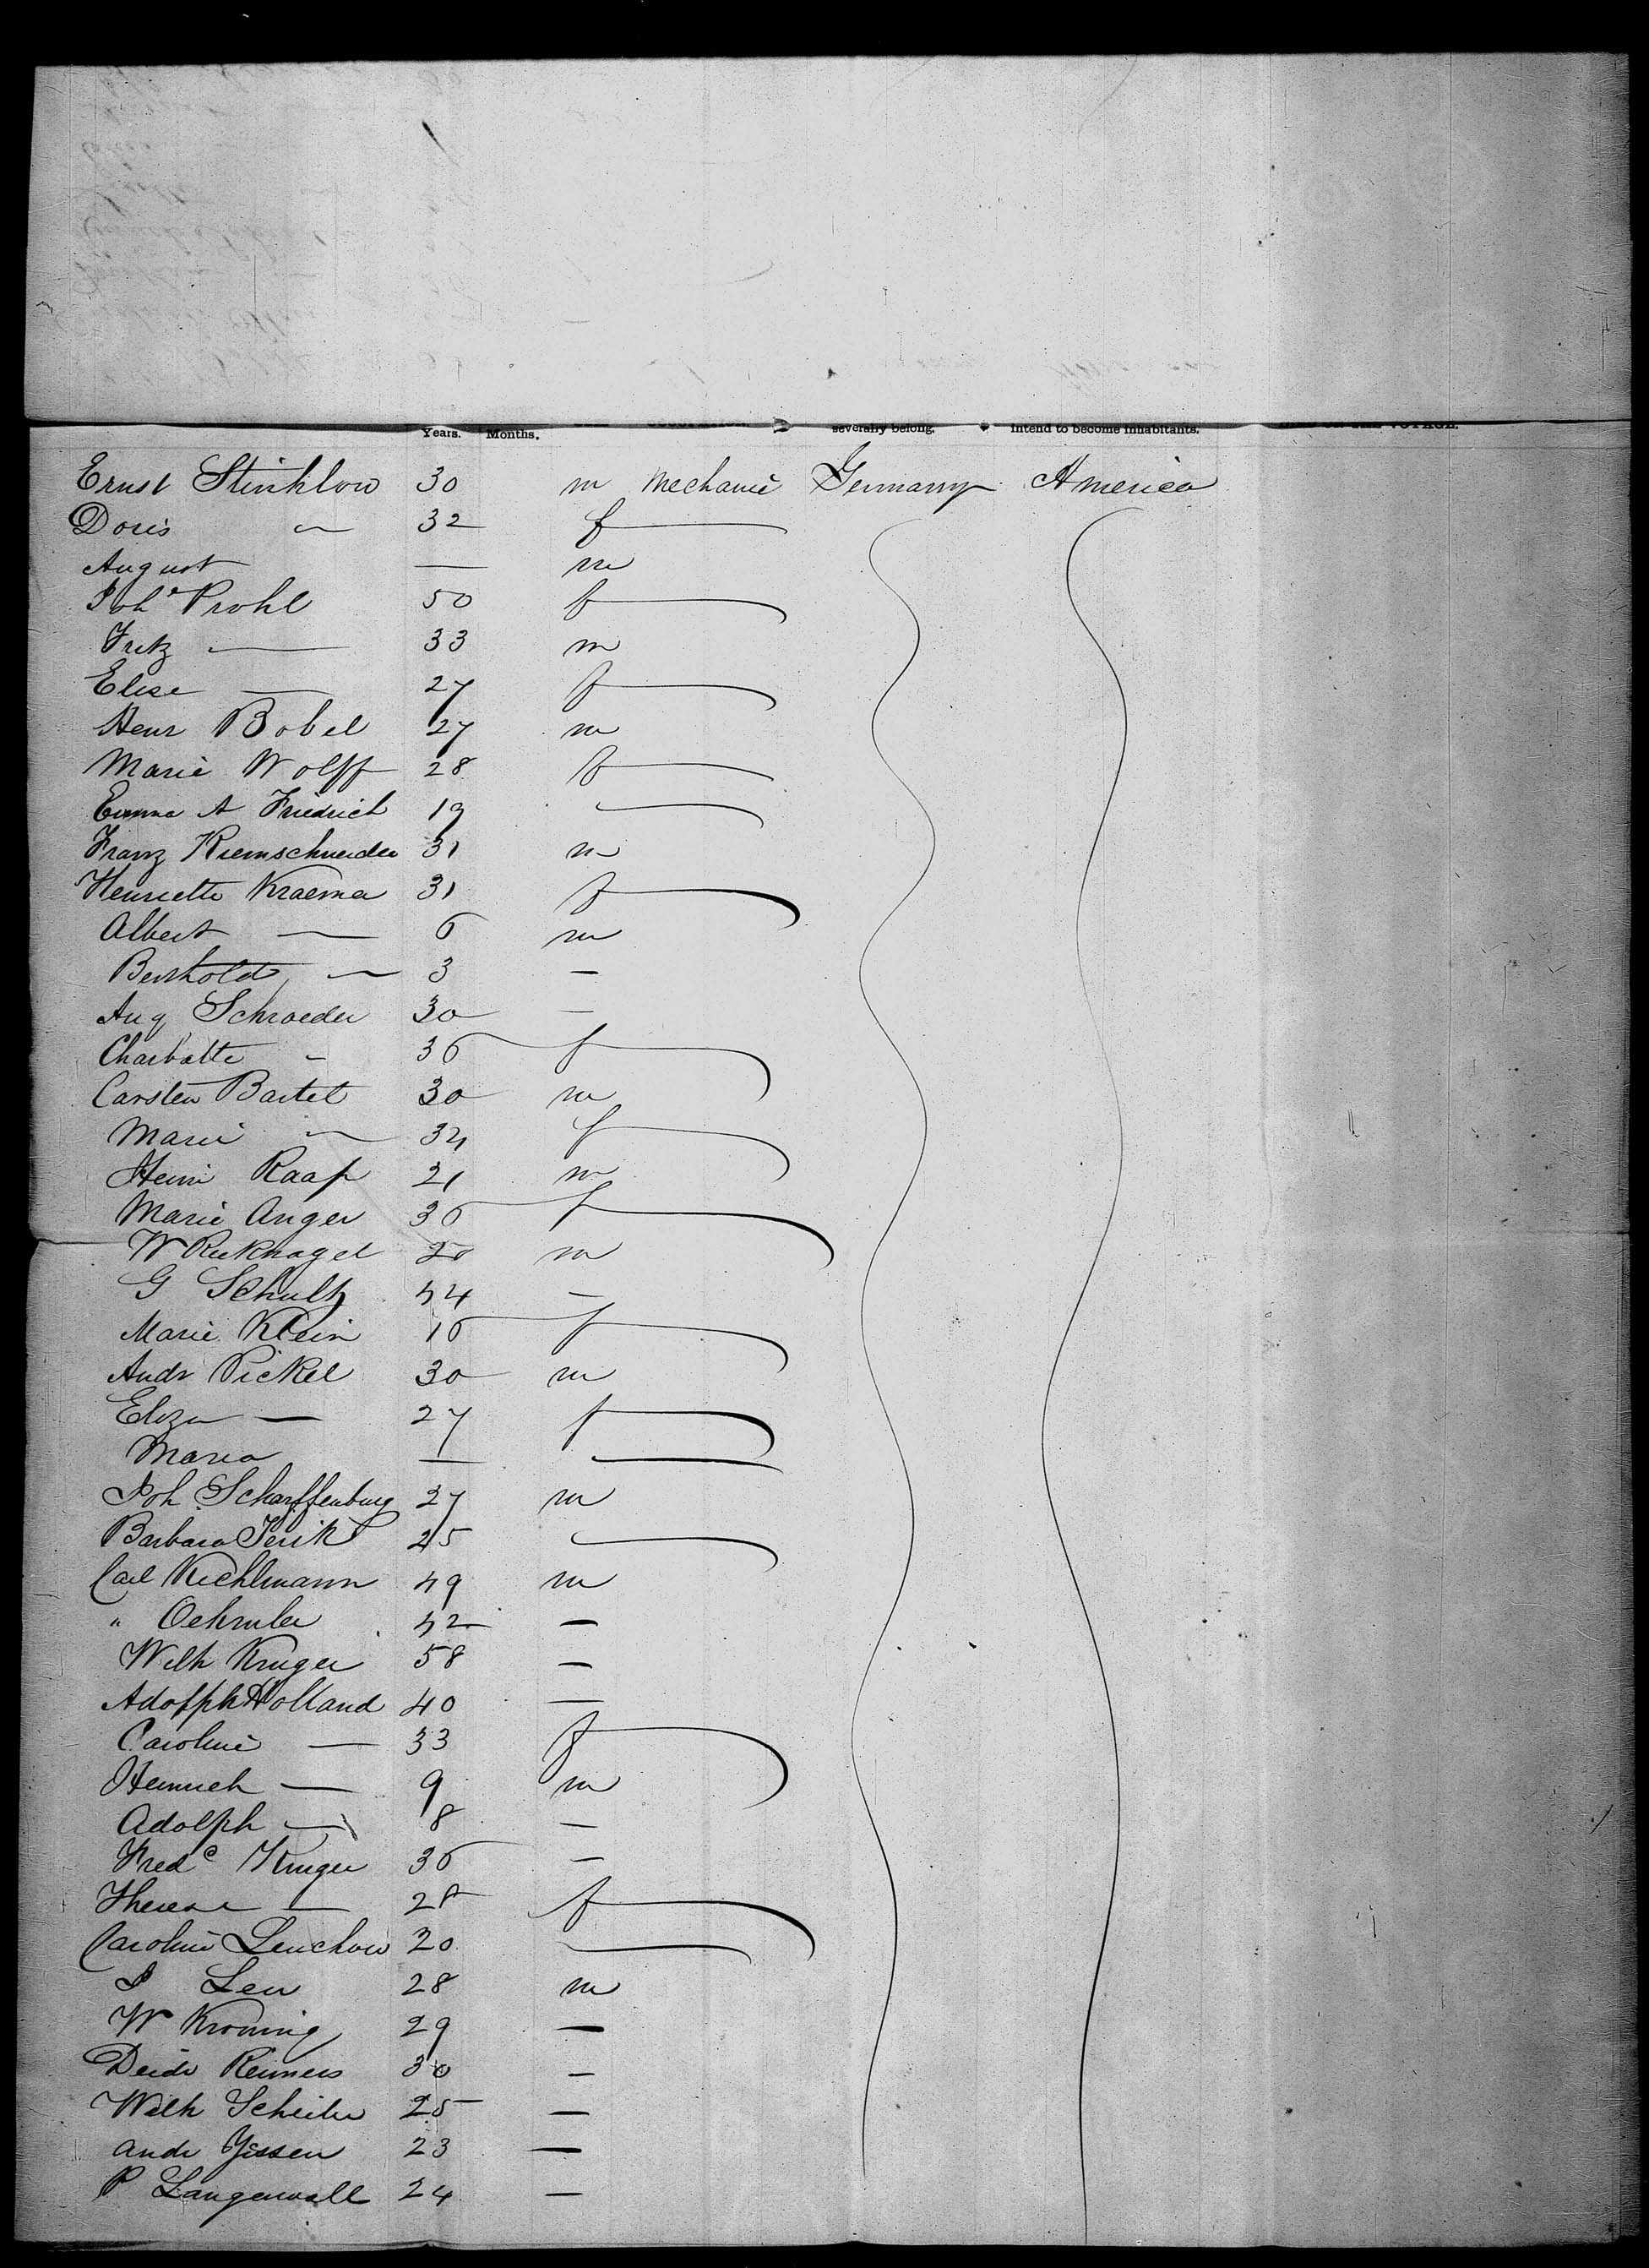 Years. Months. severally belong. intend to become inhabitants. VOYAGE.
Ernst Stinklow 30 m Mechanic Germany America
Doris — 32 f
August — m
Joh^a Prohl 50 f
Fritz — 33 m
Elise — 27 f
Henr Bobel 27 m
Marie Wolff 28 f
Emma A Friedrich 19
Franz Riemschneider 31 m
Henriette Kraemer 31 f
Albert — 6 m
Berthold — 3 —
Aug Schroeder 30 —
Charlotte - 36 f
Carsten Bartel 30 m
Marie — 34 f
Heinr Raap 21 m
Marie Anger 36 f
W Recknagel 20 m
G Schultz 44 —
Marie Klein 16 f
Andr Pickel 30 m
Eliza — 27 f
Maria —
Joh Scharffenburg 27 m
Barbara 25
Carl Kuhlmann 49 m
" 42 —
Wilh Kruger 58 —
Adolph Holland 40 —
Caroline — 33 f
Heinrich — 9 m
Adolph — 8 —
Fred^c Kruger 36 —
Therese — 28 f
Caroline Leuchow 20
J Leu 28 m
W Kroning 29 —
Deidr Reimers 30 —
Wilh 25 —
Andr Jessen 23 —
P Langenwall 24 —